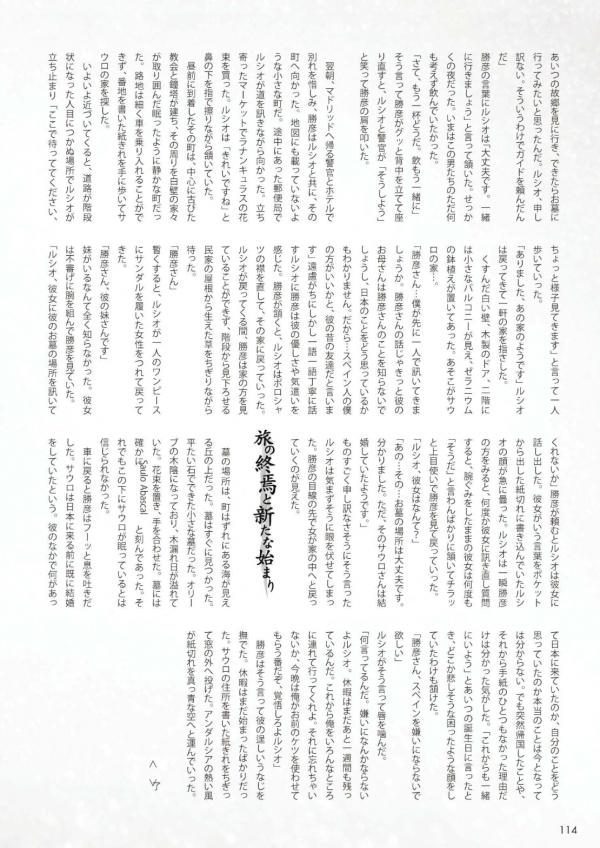 あいつの故郷を見に行き、できたらお墓に
行ってみたいと思ったんだ。ルシオ、申し
訳ない。そういうわけでガイドを頼んだん
だ」
勝彦の言葉にルシオは「大丈夫です。一緒
に行きましょう」と言って頷いた。せっか
くの夜だった。いまはこの男たちのただ何
も考えず飲んでいたかった。
「さて、もう一杯どうだ。飲もう一緒に」
そう言って勝彦がグッと背中を立てて座
り直すと、ルシオと警官が「そうしよう」
と笑って勝彦の肩を叩いた。
翌朝、マドリッドへ帰る警官とホテルで
別れを惜しみ、勝彦はルシオと共に、その
町へ向かった。地図にも載っていないよ
うな小さな町だ。途中にあった郵便局で
ルシオが道を訊きながら向かった。立ち
寄ったマーケットでラナンキュラスの花
束を買った。ルシオは「きれいですね」と
鼻の下を指で擦りながら頷いていた。
昼前に到着したその町は、中心に古びた
教会と鐘塔が建ち、その周りを白壁の家々
が取り囲んだ眠ったように静かな町だっ
た。路地は細く車を乗り入れることがで
きず、番地を書いた紙きれを手に歩いてサ
ウロの家を探した。
いよいよ近づいてくると、道路が階段
状になった人目につかぬ場所でルシオが
立ち止まり「ここで待っててください、
ちょっと様子見てきます」と言って一人
歩いていった。
「ありました、あの家のようです」ルシオ
は戻ってきて一軒の家を指さした。
くすんだ白い壁、木製のドア、二階に
は小さなバルコニーが見え、ゼラニウム
の鉢植えが置いてあった。あそこがサウ
ロの家…。
「勝彦さん…僕が先に一人で訊いてきま
しょうか。勝彦さんの話じゃきっと彼の
お母さんは勝彦さんのことを知らないで
しょうし、日本のことをどう思っているか
もわかりません。だから…スペイン人の僕
の方がいいかと、彼の昔の友達だと言いま
す」遠慮がちにしかし一語一語丁寧に話
すルシオに勝彦は彼の優しさや気遣いを
感じた。勝彦が頷くと、ルシオはポロシャ
ツの襟を直して、その家に戻っていった。
ルシオが戻ってくる間、勝彦は家の方を見
ていることができず、階段から見下ろせる
民家の屋根から生えた草をちぎりながら
待った。
「勝彦さん」
暫くすると、ルシオが一人のワンピース
にサンダルを履いた女性をつれて戻って
きた。
「勝彦さん、彼の妹さんです」
妹がいるなんて全く知らなかった。彼女
は不審げに腕を組んで勝彦を見ていた。
「ルシオ、彼女に彼のお墓の場所を訊いて
くれないか」勝彦が頼むとルシオは彼女に
話し出した。彼女がいう言葉をポケット
から出した紙切れに書き込んでいたルシ
オの顔が急に曇った。ルシオは一瞬勝彦
の方をみると、何度か彼女に訊き直し質問
すると、腕ぐみをしたままの彼女は何度も
「そうだ」と言わんばかりに頷いてチラッ
と上目使いで勝彦を見て戻っていった。
「ルシオ、彼女はなんて？」
「あの…その…お墓の場所は大丈夫です。
分かりました。ただ、そのサウロさんは結
婚していたようです。」
ものすごく申し訳なさそうにそう言った
ルシオは気まずそうに眼を伏せてしまっ
た。勝彦の目線の先で女が家の中へと戻っ
ていくのが見えた。
旅の終焉と新たな始まり
墓の場所は、町はずれにある海が見え
る丘の上だった。墓はすぐに見つかった。
平たい石でできた小さな墓だった。オリー
ブの木陰になっており、木漏れ日が溢れて
いた。花束を置き、手を合わせた。墓には
確かに Saulo Abascal と刻んであった。そ
れでもこの下にサウロが眠っているとは
信じられなかった。
車に戻ると勝彦はフーッと息を吐きだ
した。サウロは日本に来る前に既に結婚
をしていたという。彼のなかで何があっ
て日本に来ていたのか、自分のことをどう
思っていたのか本当のことは今となって
は分からない。でも突然帰国したことや、
それから手紙のひとつもなかった理由だ
けは分かった気がした。「これからも一緒
にいよう」とあいつの誕生日に言ったと
き、どこか悲しそうな困ったような顔をし
ていたわけも頷けた。
「勝彦さん、スペインを嫌いにならないで
欲しい」
ルシオがそう言って唇を噛んだ。
「何言ってるんだ。嫌いになんかならない
よルシオ。休暇はまだあと一週間も残っ
ているんだ。これから俺をいろんなところ
に連れて行ってくれよ。それに忘れちゃい
ないか、今晩は俺がお前のケツを使わせて
もらう番だぞ、覚悟しろよルシオ」
勝彦はそう言って彼の逞しいうなじを
撫でた。休暇はまだ始まったばかりだっ
た。サウロの住所を書いた紙きれをちぎっ
て窓の外へ投げた。アンダルシアの熱い風
が紙切れを真っ青な空へと運んでいった。
＜了＞
114